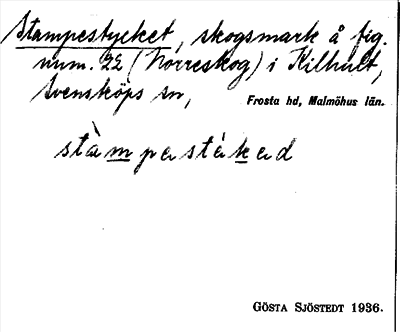 Stampestycket, skogsmark å fig.
num. 22 (Norreskog) i Kilhult,
Svensköps sn,
Frosta hd, Malmöhus län.
stàmpəstékəd
GÖSTA SJÖSTEDT 1936.